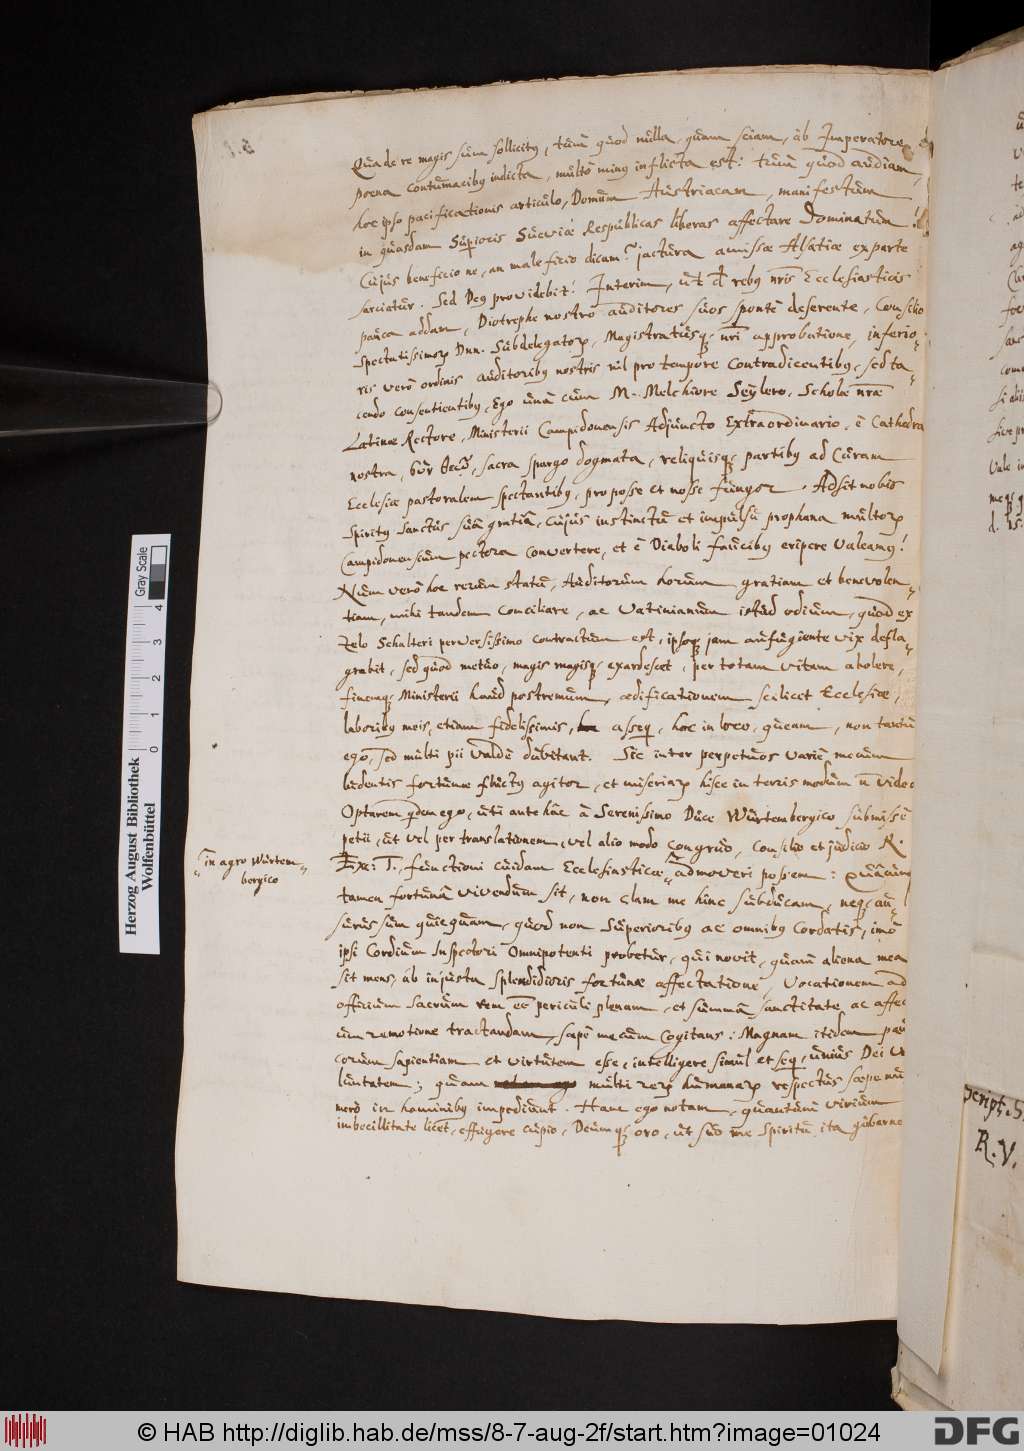 Qua de re magis sum sollicitus, tum quod nulla, quam sciam, ab Imperatore
poena contumacibus indicta, multo minus inflicta est: tum quod audiam,
hoc ipso pacificationis articulo, Domum Austriacam, manifestum
in quasdam Superioris Sueviae Respublicas liberas affectare Dominatum!
Cujus beneficio ne, an maleficio dicam? jactura amissae Alsatiae ex parte
sarciatur. Sed Deus providebit! Interim, ut de rebus nris Ecclesiasticis
pauca addam, Diotrephe nostro auditores suos sponte deserente, Consilio
Spectatissimor Dnn. Subdelegator, Magistratusq nri approbatione, inferio-
ris vero ordinis auditoribus nostris nil pro tempore contradicentibus, sed ta-
cendo consentientibus, Ego una cum M. Melchiore Seylero, Scholae nrae
Latinae Rectore, Ministerii Campidonensis Adjuncto Extraordinario, e Cathedra
nostra, σὺν θεῷ, sacra spargo dogmata, reliquisq partibus ad Curam
Ecclesiae pastoralem spectantibus, pro posse et nosse fungor. Adsit nobis
Spiritus Sanctus sua gratia, cujus instinctu et impulsu prophana multor
Campidonensium pectora convertere, et e Diaboli faucibus eripere valeamus!
Num vero hoc rerum statu, Auditorum horum gratiam et benevolen-
tiam, mihi tandem conciliare, ac Vatinianum istud odium, quod ex
Zelo Schalteri perversissimo contractum est, ipsoq jam aufugiente vix defla-
grabit, sed quod metuo, magis magisq exardescet, per totam vitam abolere,
finemq Ministerii haud postremum, aedificationem scilicet Ecclesiae,
laboribus meis, etiam fidelissimis, asseq, hoc in loco, queam, non tantum
ego, sed multi pii valde dubitant. Sic inter perpetuos varie mecum
ludentis fortunae fluctus agitor, et miseriar hisce in terris modum n video
Optarem qdem ego, uti ante hac a Serenissimo Duce Würtembergico submisse
petii, ut vel per translationem, vel alio modo congruo, Consilio et judicio R.
Exc: T., functioni cuidam Ecclesiasticae, admoveri possem: quacunq
in agro Würtem-
bergico
tamen fortuna vivendum sit, non clam me hinc subducam, neq au-
surus sum quicquam, quod non Superioribus ac omnibus Cordatis, imo
ipsi Cordium Inspectori Omnipotenti probetur, qui novit, quam aliena mea
sit mens, ab injusta splendidioris fortunae affectatione, Vocationem ad
officium sacrum rem ee periculi plenam, et summa sanctitate, ac affec
uum remotione tractandam, saepe mecum cogitans: Magnam itidem pau
corum sapientiam et virtutem esse, intelligere simul et seq, unius Dei vo
luntatem; quam multi rer humanar respectus saepe nu
mero in hominibus impediunt. Hanc ego notam, quantum virium
imbecillitate licet, effugere cupio, Deumq oro, ut suo me Spiritu ita guberne
Script. S
R. V.
Herzog August Bibliothek
Wolfenbüttel
0 1 2 3 4
Gray Scale
© HAB http://diglib.hab.de/mss/8-7-aug-2f/start.htm?image=01024
DFG